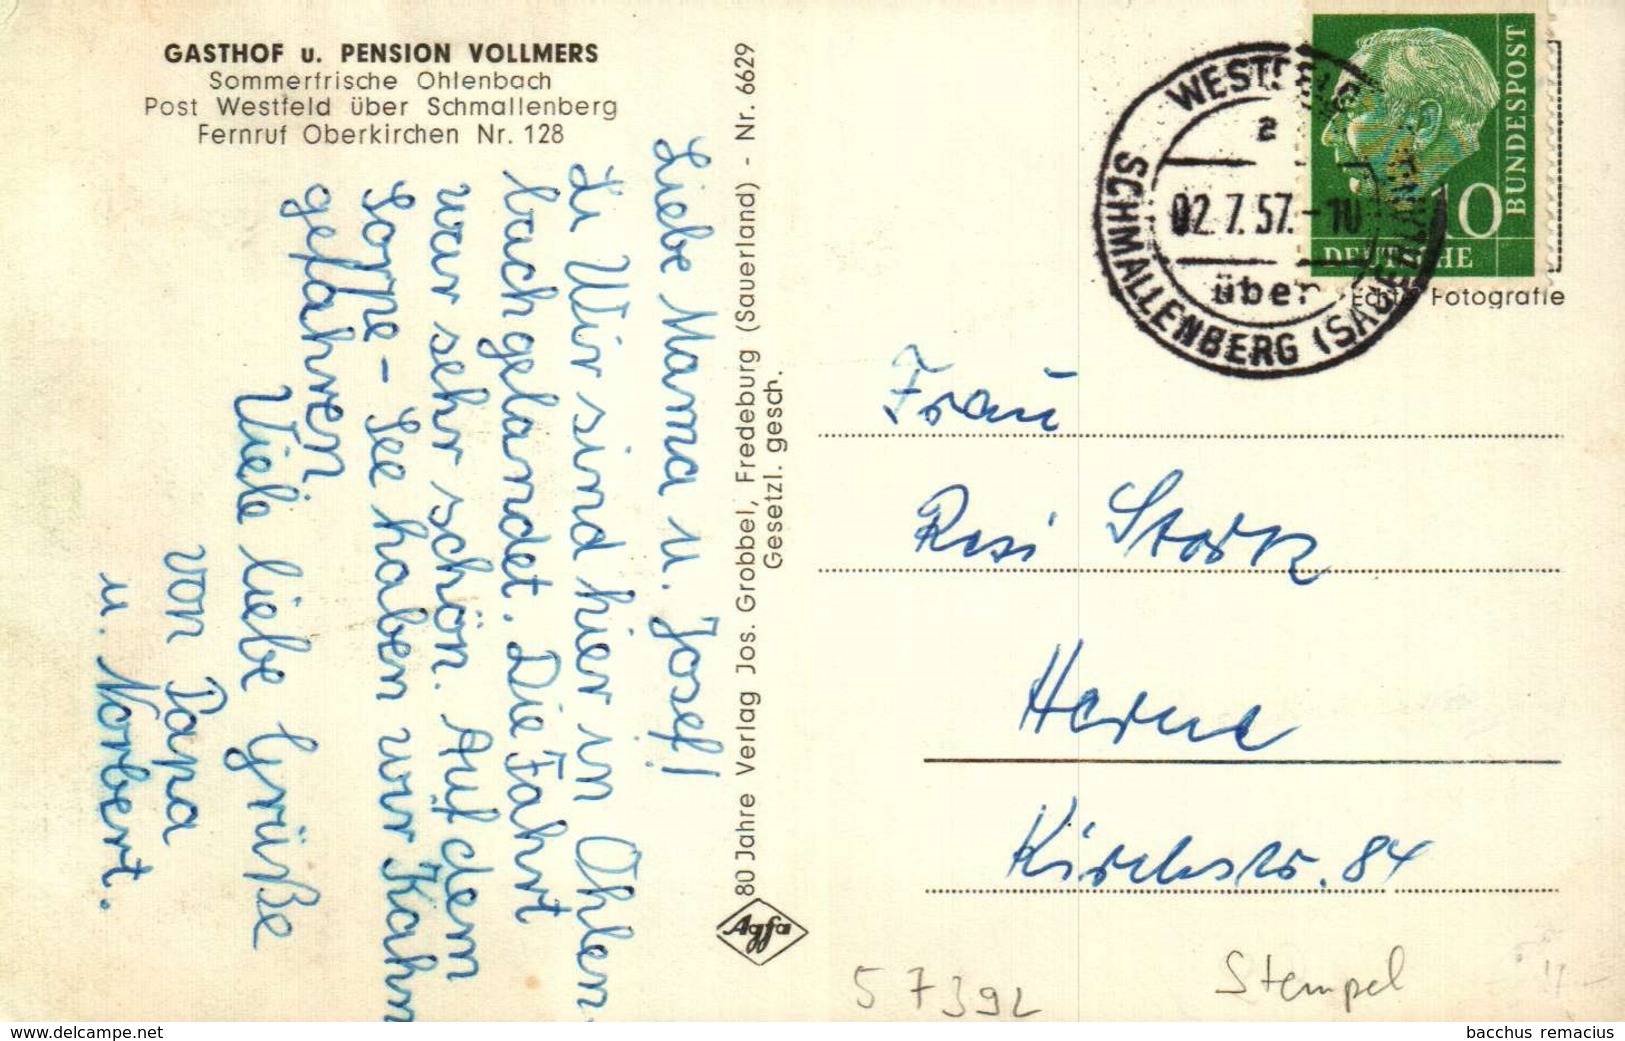 GASTHOF u. PENSION VOLLMERS
Sommerfrische Ohlenbach
Post Westfeld über Schmallenberg
Fernruf Oberkirchen Nr. 128
Liebe Mama u. Josef!
Wir sind hier in Ohlen-
bach gelandet. Die Fahrt
war sehr schön. Auf dem
Sorpe - See haben wir Kahn
gefahren
Viele liebe Grüße
von Papa
u. Norbert.
80 Jahre Verlag Jos. Grobbel, Fredeburg (Sauerland) - Nr. 6629
Gesetzl. gesch.
Agfa
WESTFELD
a
02.7.57.-10
über
SCHMALLENBERG (SAUERLAND)
BUNDESPOST
10
DEUTSCHE
Echte Fotografie
Frau
Resi Stork
Herne
Kirchstr. 84
57392
Stempel
www.delcampe.net
bacchus remacius